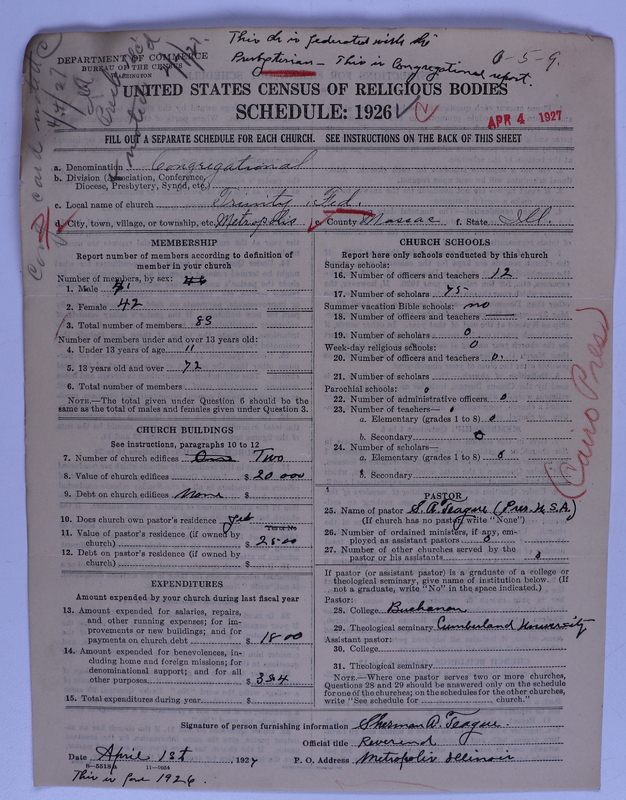 This ch is federated with the
Presbyterian - This is Congregational report.
0-5-9.
DEPARTMENT OF COMMERCE
BUREAU OF THE CENSUS
WASHINGTON
UNITED STATES CENSUS OF RELIGIOUS BODIES
SCHEDULE: 1926
APR 4 1927
FILL OUT A SEPARATE SCHEDULE FOR EACH CHURCH. SEE INSTRUCTIONS ON THE BACK OF THIS SHEET
a. Denomination Congregational
b. Division (Association, Conference, Diocese, Presbytery, Synod, etc.)
c. Local name of church Trinity Fed.
d. City, town, village, or township, etc. Metropolis e. County Massac f. State Ill.
MEMBERSHIP
Report number of members according to definition of
member in your church
Number of members, by sex:
1. Male
2. Female 42
3. Total number of members 83
Number of members under and over 13 years old:
4. Under 13 years of age 11
5. 13 years old and over 72
6. Total number of members
NOTE.—The total given under Question 6 should be
same as the total of males and females given under Question 3.
CHURCH BUILDINGS
See instructions, paragraphs 10 to 12
7. Number of church edifices One Two
8. Value of church edifices $ 20 000
9. Debt on church edifices None $
10. Does church own pastor's residence yes
Yes or No
11. Value of pastor's residence (if owned by
church) $ 2500
12. Debt on pastor's residence (if owned by
church) $
EXPENDITURES
Amount expended by your church during last fiscal year
13. Amount expended for salaries, repairs,
and other running expenses; for im-
provements or new buildings; and for
payments on church debt $ 1800
14. Amount expended for benevolences, in-
cluding home and foreign missions; for
denominational support; and for all
other purposes $ 384
15. Total expenditures during year $
CHURCH SCHOOLS
Report here only schools conducted by this church
Sunday schools:
16. Number of officers and teachers 12
17. Number of scholars 75
Summer vacation Bible schools: no
18. Number of officers and teachers
19. Number of scholars 0
Week-day religious schools: 0
20. Number of officers and teachers 0
21. Number of scholars
Parochial schools: 0
22. Number of administrative officers 0
23. Number of teachers— 0
a. Elementary (grades 1 to 8) 0
b. Secondary 0
24. Number of scholars—
a. Elementary (grades 1 to 8) 0
b. Secondary
PASTOR
25. Name of pastor S. A. Teague (Pres. U.S.A.)
(If church has no pastor, write "None")
26. Number of ordained ministers, if any, em-
ployed as assistant pastors 0
27. Number of other churches served by the
pastor or his assistants
If pastor (or assistant pastor) is a graduate of a college or
theological seminary, give name of institution below. (If
not a graduate, write "No" in the space indicated.)
Pastor:
28. College Buchanan
29. Theological seminary Cumberland University
Assistant pastor:
30. College
31. Theological seminary
NOTE.—Where one pastor serves two or more churches,
Questions 28 and 29 should be answered only on the schedule
for one of the churches; on the schedules for the other churches,
write "See schedule for church."
(Cairo Pres)
Signature of person furnishing information Sherman A. Teague.
Official title Reverend
Date April 1st, 1927 P. O. Address Metropolis Illinois
8—5518a 11—9024
This is for 1926.